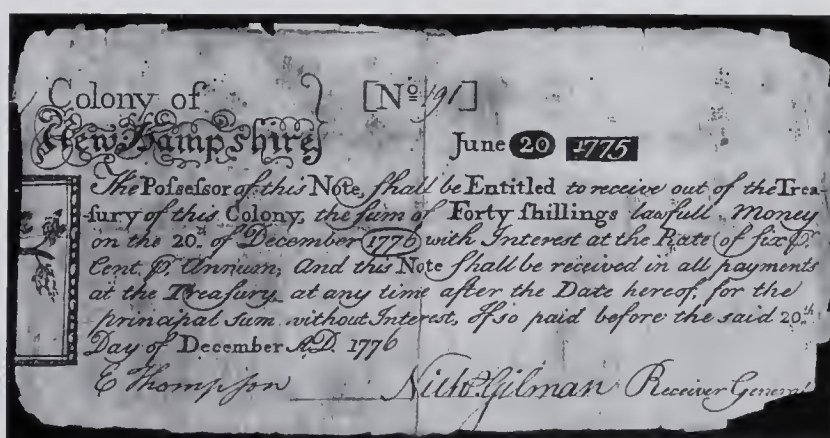 Colony of [Nº 191]
New Hampshire June 20 1775
The Poſseſsor of this Note, ſhall be Entitled to receive out of the Trea-
ſury of this Colony, the ſum of Forty ſhillings lawfull Money
on the 20.th of December 1776 with Interest at the Rate of ſix ⅌.
Cent. ⅌. Annum; And this Note ſhall be received in all payments
at the Treaſury, at any time after the Date hereof, for the
principal ſum without Interest, If so paid before the said 20.th
Day of December A.D. 1776
E Thompſon Nicho Gilman Receiver General